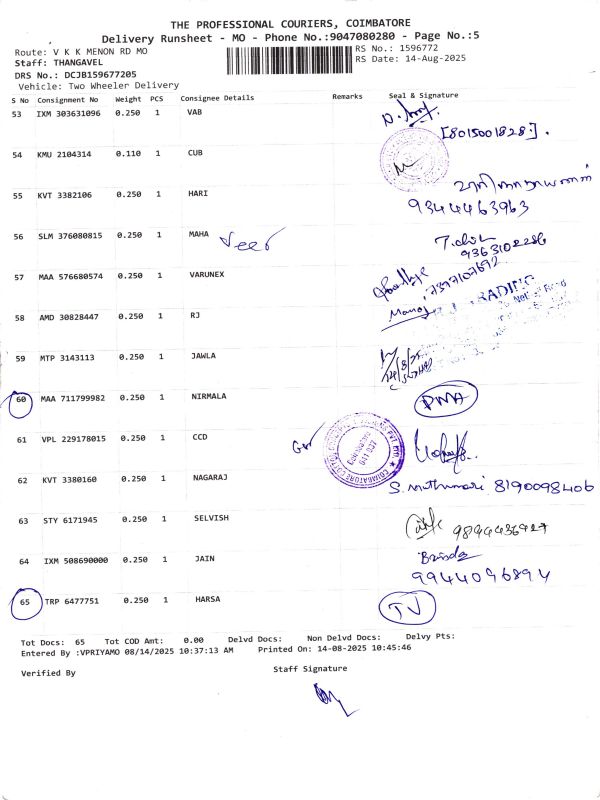 THE PROFESSIONAL COURIERS, COIMBATORE
Delivery Runsheet - MO - Phone No.:9047080280 - Page No.:5
Route: V K K MENON RD MO
RS No.: 1596772
Staff: THANGAVEL
RS Date: 14-Aug-2025
DRS No.: DCJB159677205
Vehicle: Two Wheeler Delivery
S No Consignment No Weight PCS Consignee Details Remarks Seal & Signature
53 IXM 303631096 0.250 1 VAB
[8015001828].
54 KMU 2104314 0.110 1 CUB
55 KVT 3382106 0.250 1 HARI
9344463963
56 SLM 376080815 0.250 1 MAHA Veer
9363102286
57 MAA 576680574 0.250 1 VARUNEX
7397107692
58 AMD 30828447 0.250 1 RJ
Manoj TRADING
59 MTP 3143113 0.250 1 JAWLA
60 MAA 711799982 0.250 1 NIRMALA
61 VPL 229178015 0.250 1 CCD
COIMBATORE 641 037
62 KVT 3380160 0.250 1 NAGARAJ
S. Muthumari 8190098406
63 STY 6171945 0.250 1 SELVISH
9894436427
64 IXM 508690000 0.250 1 JAIN
Brinda
9944096894
65 TRP 6477751 0.250 1 HARSA TJ
Tot Docs: 65 Tot COD Amt: 0.00 Delvd Docs: Non Delvd Docs: Delvy Pts:
Entered By :VPRIYAMO 08/14/2025 10:37:13 AM Printed On: 14-08-2025 10:45:46
Verified By
Staff Signature